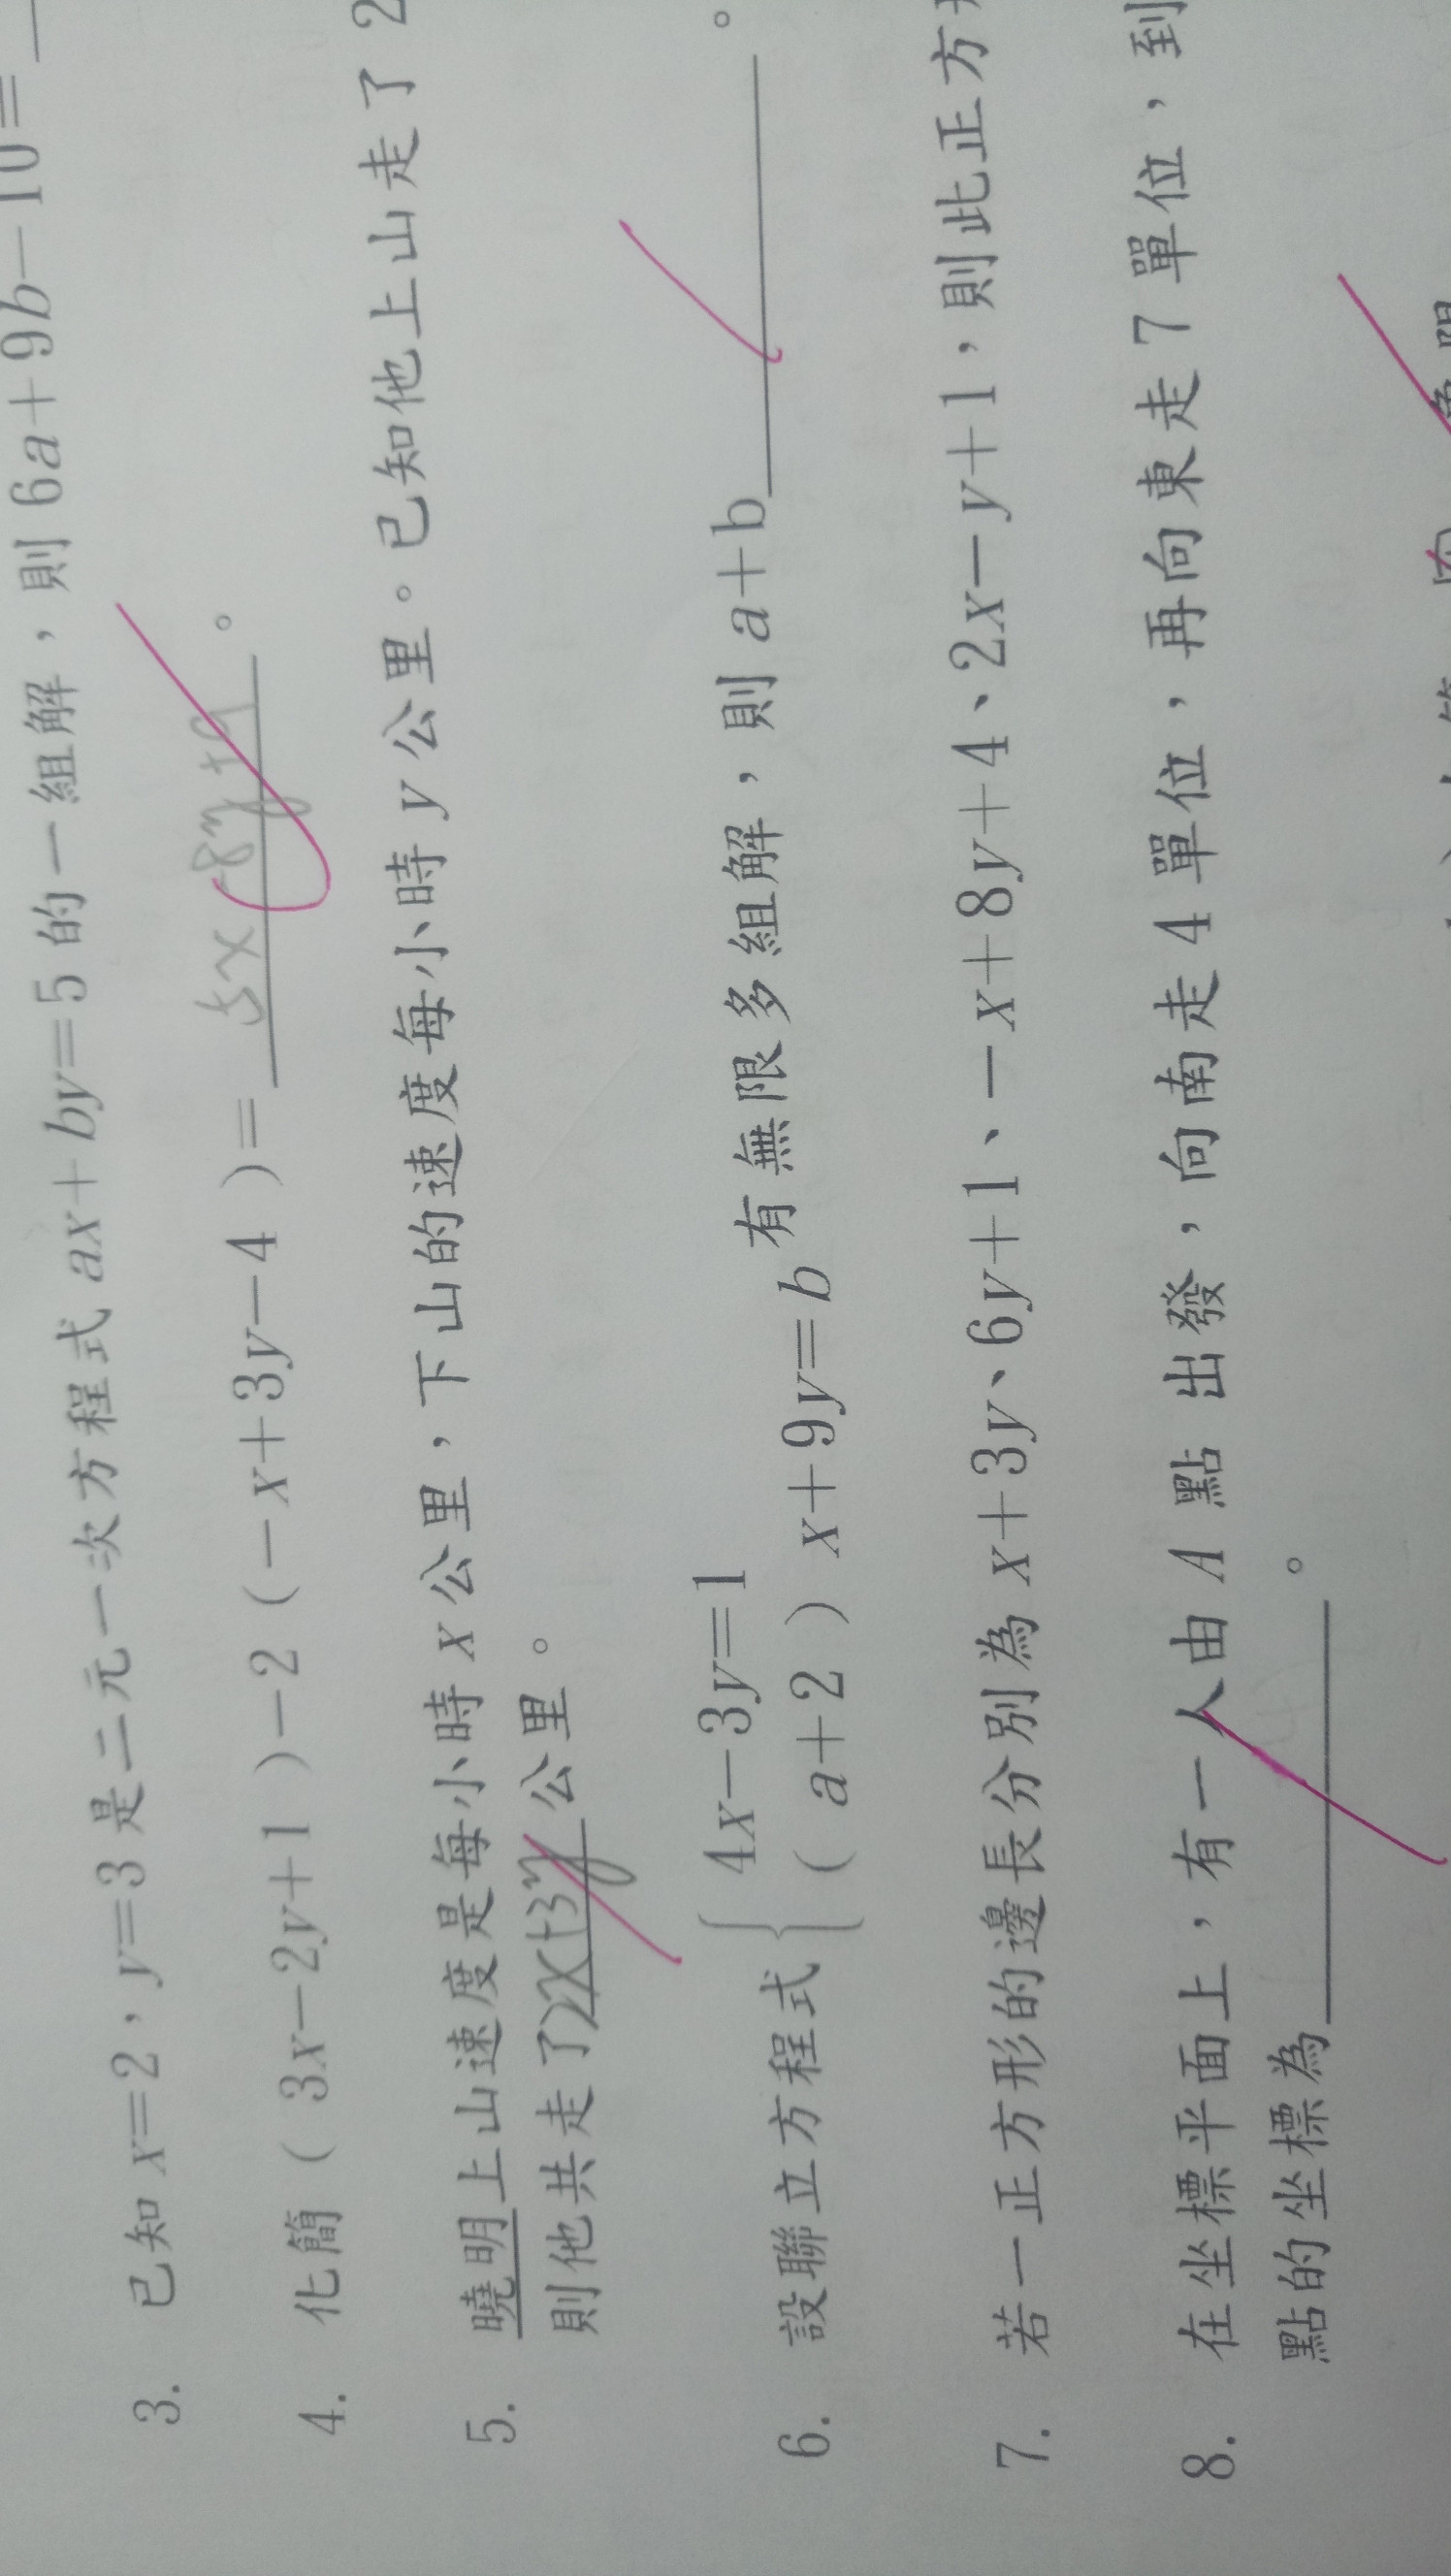 3. 已知 x=2，y=3 是二元一次方程式 ax+by=5 的一組解，則 6a+9b－10=
4. 化簡（3x－2y+1）－2（－x+3y－4）= 5x-8y+9 。
5. 曉明上山速度是每小時 x 公里，下山的速度每小時 y 公里。已知他上山走了 2
則他共走了2x+3y公里。
6. 設聯立方程式 { 4x－3y=1
（a+2）x+9y=b 有無限多組解，則 a+b 。
7. 若一正方形的邊長分別為 x+3y、6y+1、－x+8y+4、2x－y+1，則此正方
8. 在坐標平面上，有一人由 A 點 出發，向南走 4 單位，再向東走 7 單位，到
點的坐標為 。